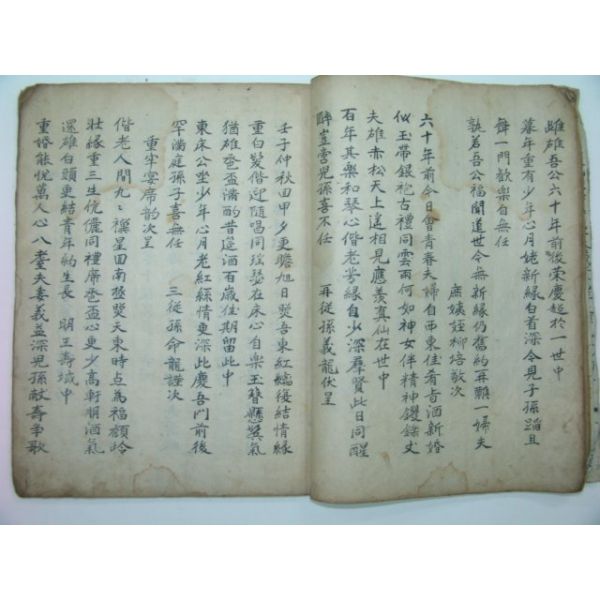 雖雄吾公六十年前後榮慶超於一世中
暮年重有少年心月姥新緣白首深今見子孫蹈且
舞一門歡樂自無任
孰若吾公福聞道世今無新緣仍舊約再難一婦夫
侄柳培敬次
六十年前今日會青春夫婦自西東佳肴旨酒新婚
似玉帶銀袍古禮同雲雨何如神女伴精神钁鑠丈
夫雄赤松天上遙相見應羨真仙在世中
百年其樂和琴心偕老芳緣自少深群賢此日同醒
醉豈啻兒孫喜不任 再從孫義龍伏呈
壬子仲秋田甲夕更瞻旭日熒吾東紅編後結情緣
重白髮偕迎隨唱同瑤琴在床心自樂玉簪懸氣
猶雄卺盃滿酌昔筵酒百歲佳期留此中
東床公坐少年心月老紅絲情更深此慶吾門前後
罕滿庭孫子喜無任 三從孫命龍謹次
重牢宴席韵次呈
偕老人間九々禩星田南極熒天東時占為福顏
壯緣重三生伉儷同禮席卺盃心更少高軒朋酒氣
還雄白頭更結青年約生長 明王壽域中
重婚能悅萬人心八耋夫妻義益深兒孫献壽爭歌